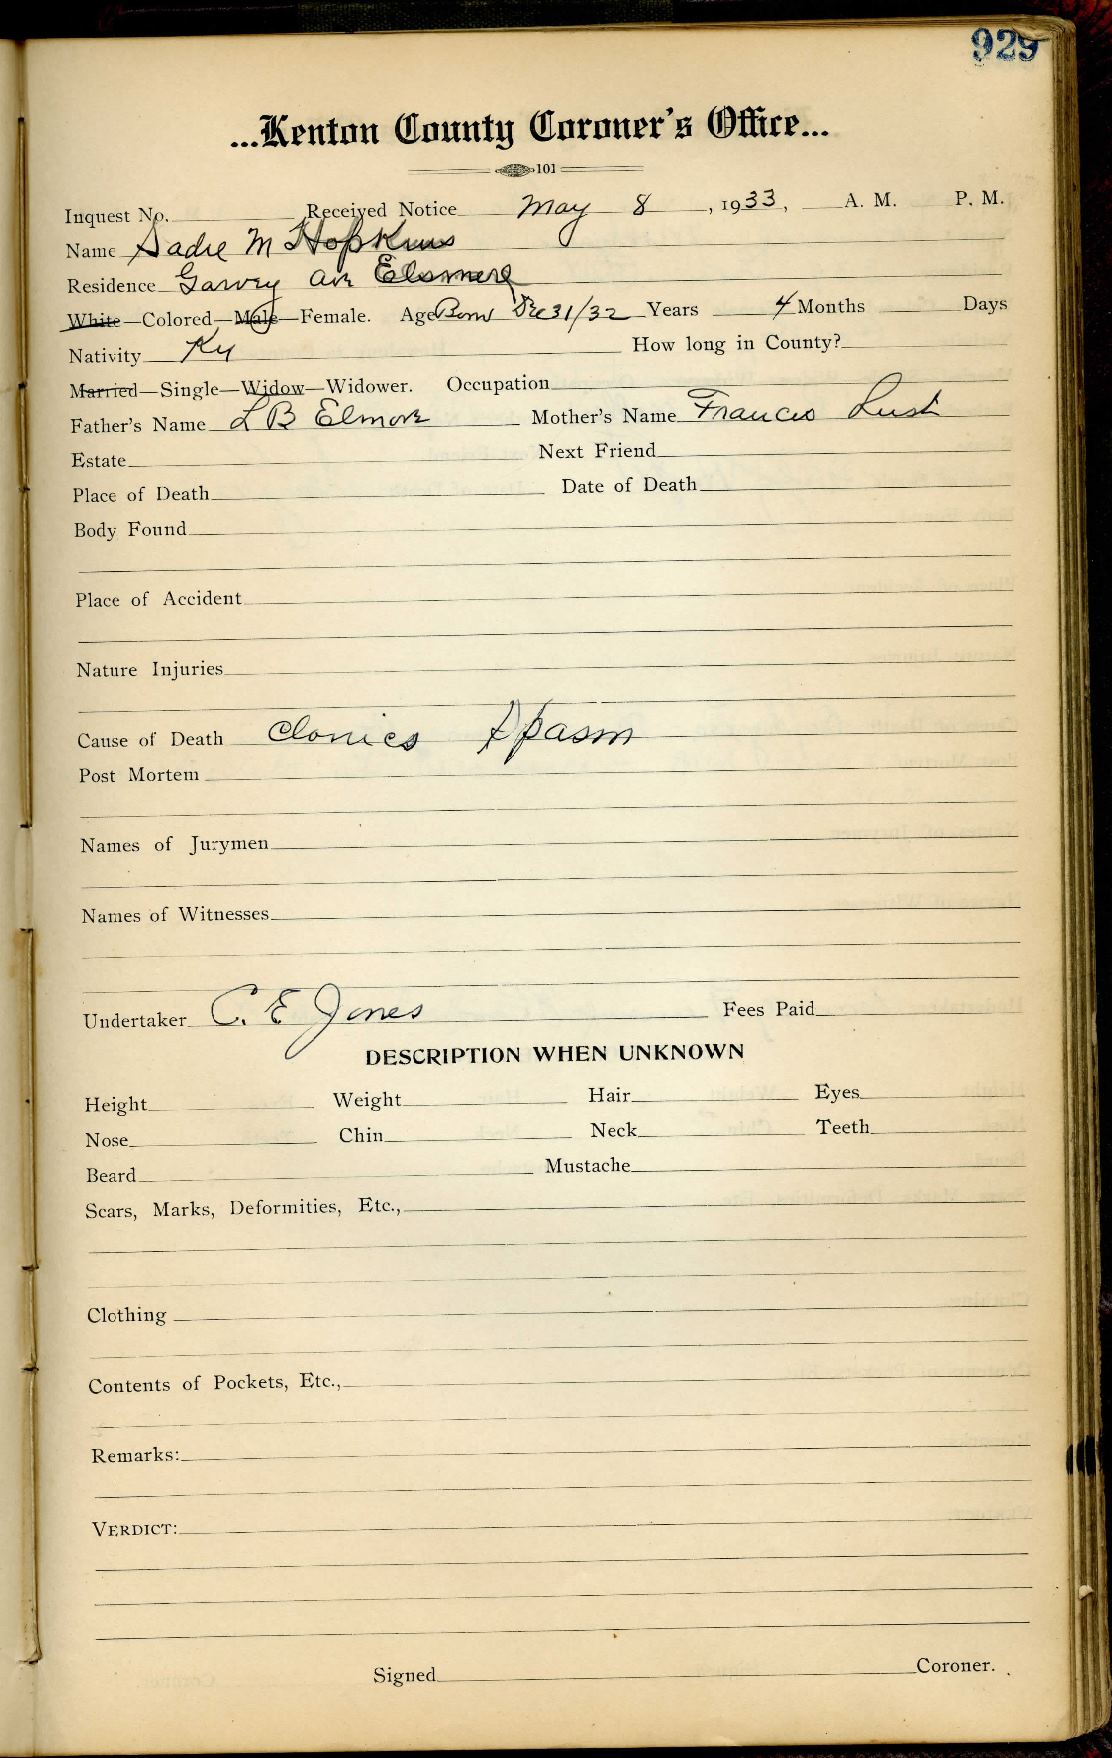 929
...Kenton County Coroner's Office...
101
Inquest No. Received Notice May 8, 1933, A. M. P. M.
Name Sadie M Hopkins
Residence Garvey Ave Elsmere
White—Colored—Male—Female. Age Born Dec 31/32 Years 4 Months Days
Nativity Ky How long in County?
Married—Single—Widow—Widower. Occupation
Father's Name L B Elmore Mother's Name Frances Rush
Estate Next Friend
Place of Death Date of Death
Body Found
Place of Accident
Nature Injuries
Cause of Death Clonics Spasm
Post Mortem
Names of Jurymen
Names of Witnesses
Undertaker C. E Jones Fees Paid
DESCRIPTION WHEN UNKNOWN
Height Weight Hair Eyes
Nose Chin Neck Teeth
Beard Mustache
Scars, Marks, Deformities, Etc.,
Clothing
Contents of Pockets, Etc.,
Remarks:
VERDICT:
Signed Coroner.